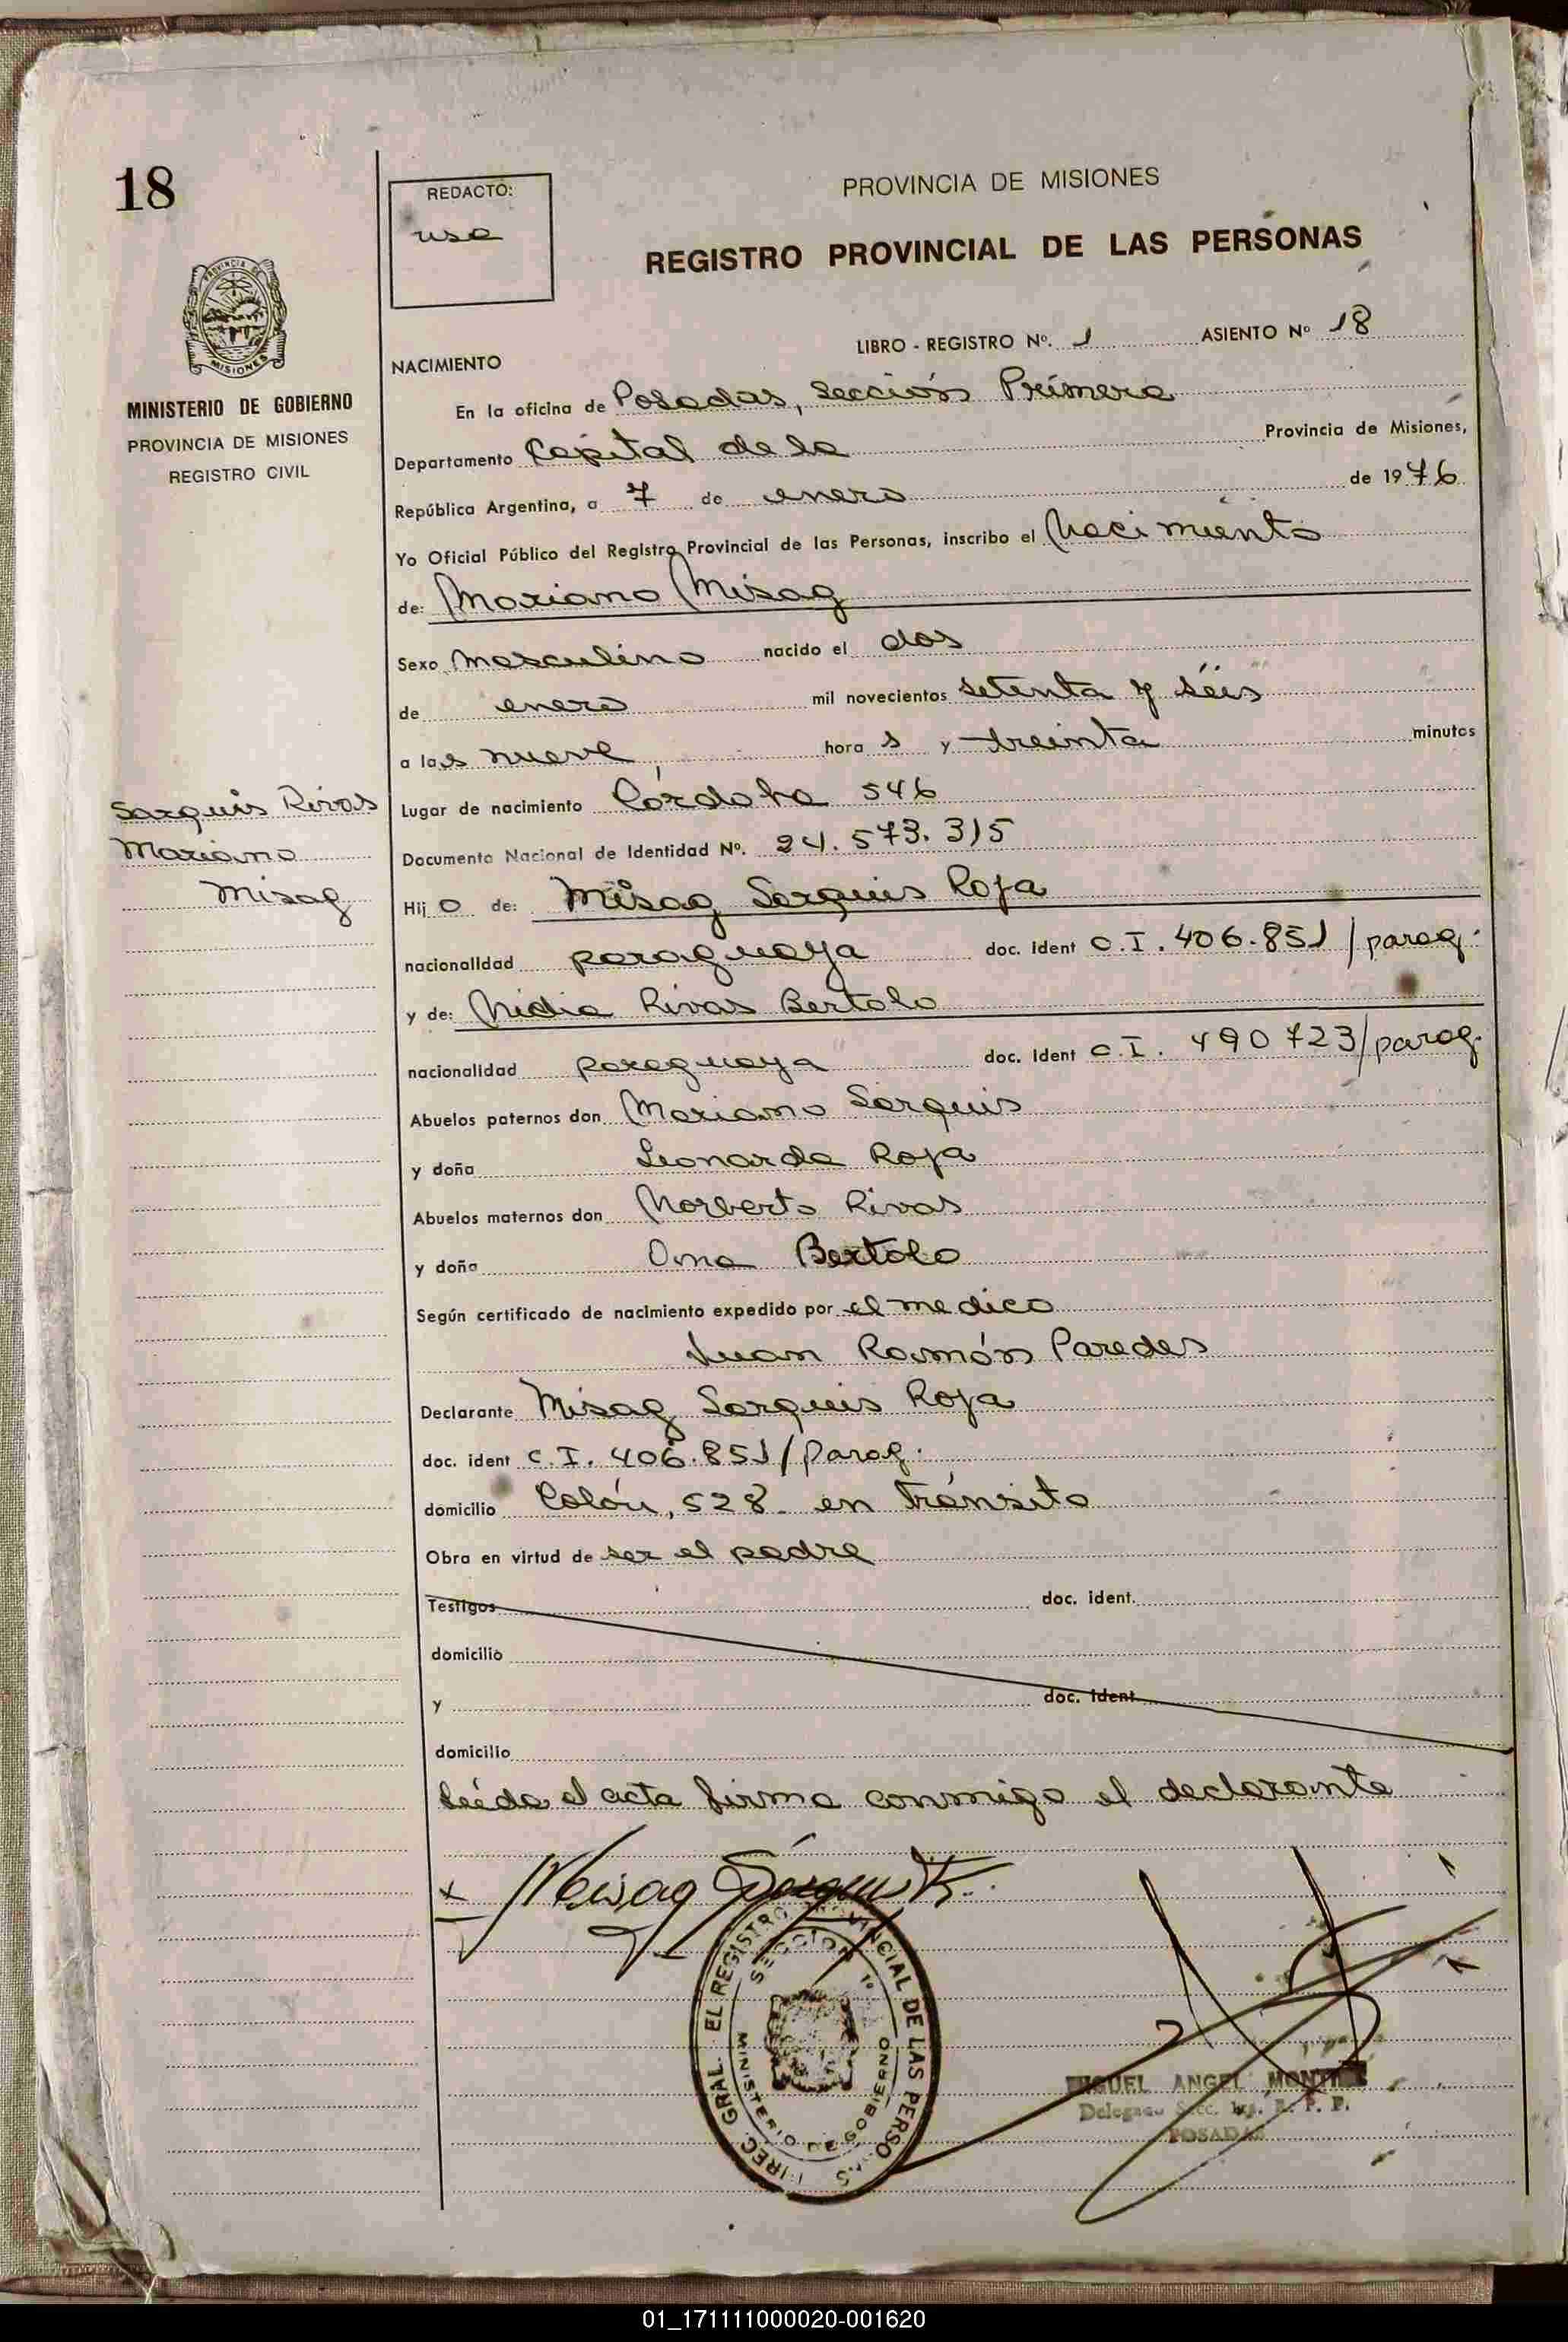 18
REDACTÓ:
usa
PROVINCIA DE MISIONES
REGISTRO PROVINCIAL DE LAS PERSONAS
PROVINCIA DE
MISIONES
MINISTERIO DE GOBIERNO
PROVINCIA DE MISIONES
REGISTRO CIVIL
NACIMIENTO
LIBRO - REGISTRO Nº. 1 ASIENTO Nº 18
En la oficina de Posadas, Sección Primera
Departamento Capital de la Provincia de Misiones,
República Argentina, a 7 de enero de 1976
Yo Oficial Público del Registro Provincial de las Personas, inscribo el Nacimiento
de: Mariano Misag
Sexo masculino nacido el dos
de enero mil novecientos setenta y séis
a las nueve hora s y treinta minutos
Lugar de nacimiento Córdoba 546
Documento Nacional de Identidad Nº. 24.573.315
Hij o de: Misag Sarquis Roja
nacionalidad paraguaya doc. ident C.I. 406.851/parag.
y de: Nidia Rivas Bertolo
nacionalidad paraguaya doc. ident C.I. 490723/parag.
Abuelos paternos don Mariano Sarquis
y doña Leonarda Roja
Abuelos maternos don Norberto Rivas
y doña Ana Bertolo
Según certificado de nacimiento expedido por el medico
Juan Ramón Paredes
Declarante Misag Sarquis Roja
doc. ident C.I. 406.851/Parag.
domicilio Colón, 528 - en tránsito
Obra en virtud de ser el padre
Testigos doc. ident.
domicilio
y doc. ident.
domicilio
Leída el acta firma conmigo el declarante
Sarquis Rivas
Mariano
Misag
x Misag Sarquis R.
DIREC. GRAL. EL REGISTRO PROVINCIAL DE LAS PERSONAS
SECCION 1º
MINISTERIO DE GOBIERNO
MIGUEL ANGEL
Delegado Secc. 1ra. R. P. P.
POSADAS
01_171111000020-001620